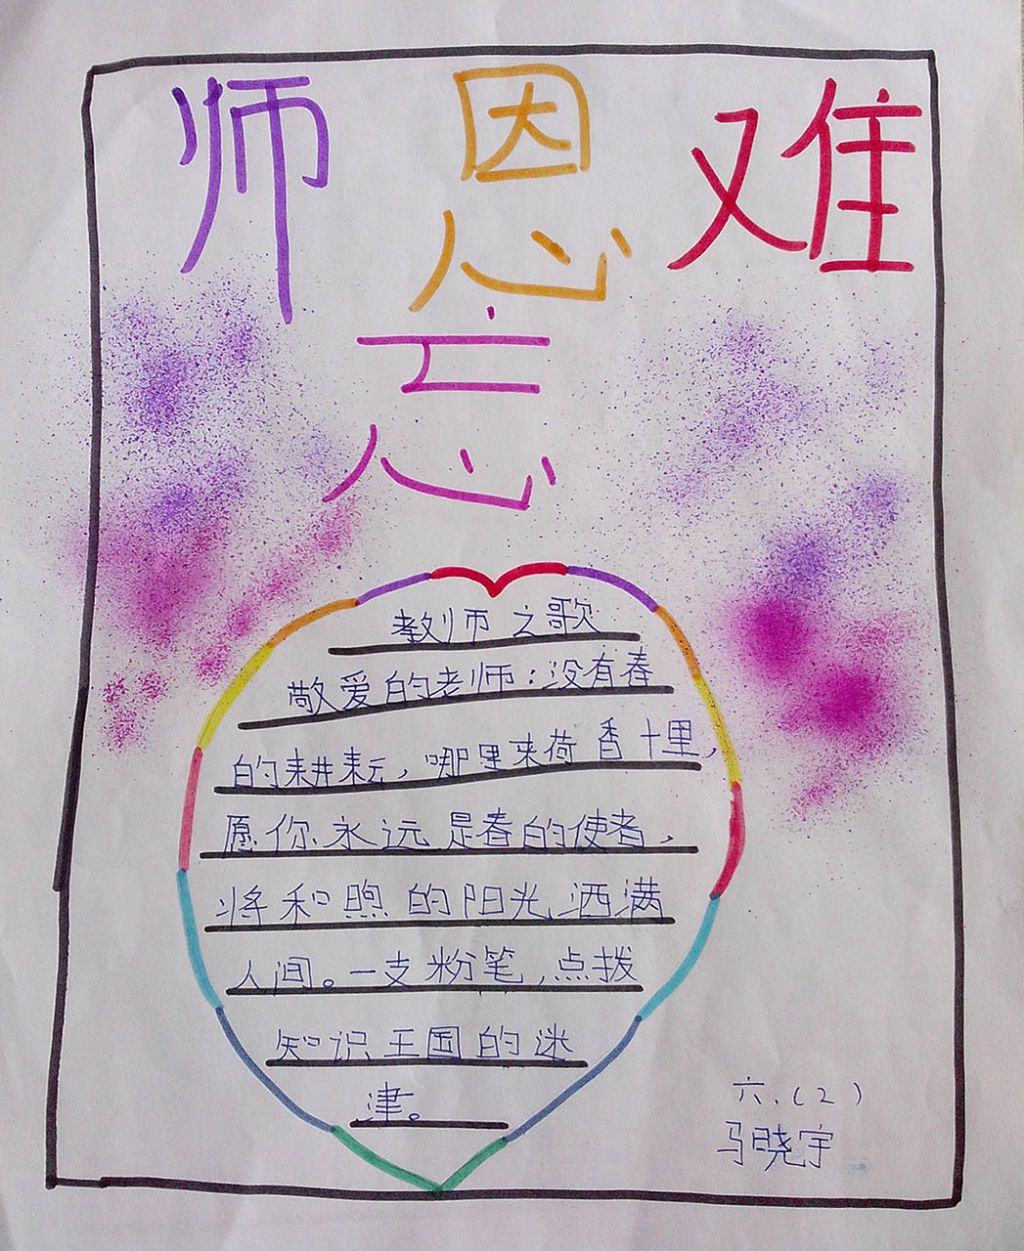 师恩难
忘
教师之歌
敬爱的老师:没有春
的耕耘,哪里来荷香十里,
愿你永远是春的使者,
将和煦的阳光洒满
人间。一支粉笔,点拨
知识王国的迷
津。
六.(2)
马晓宇